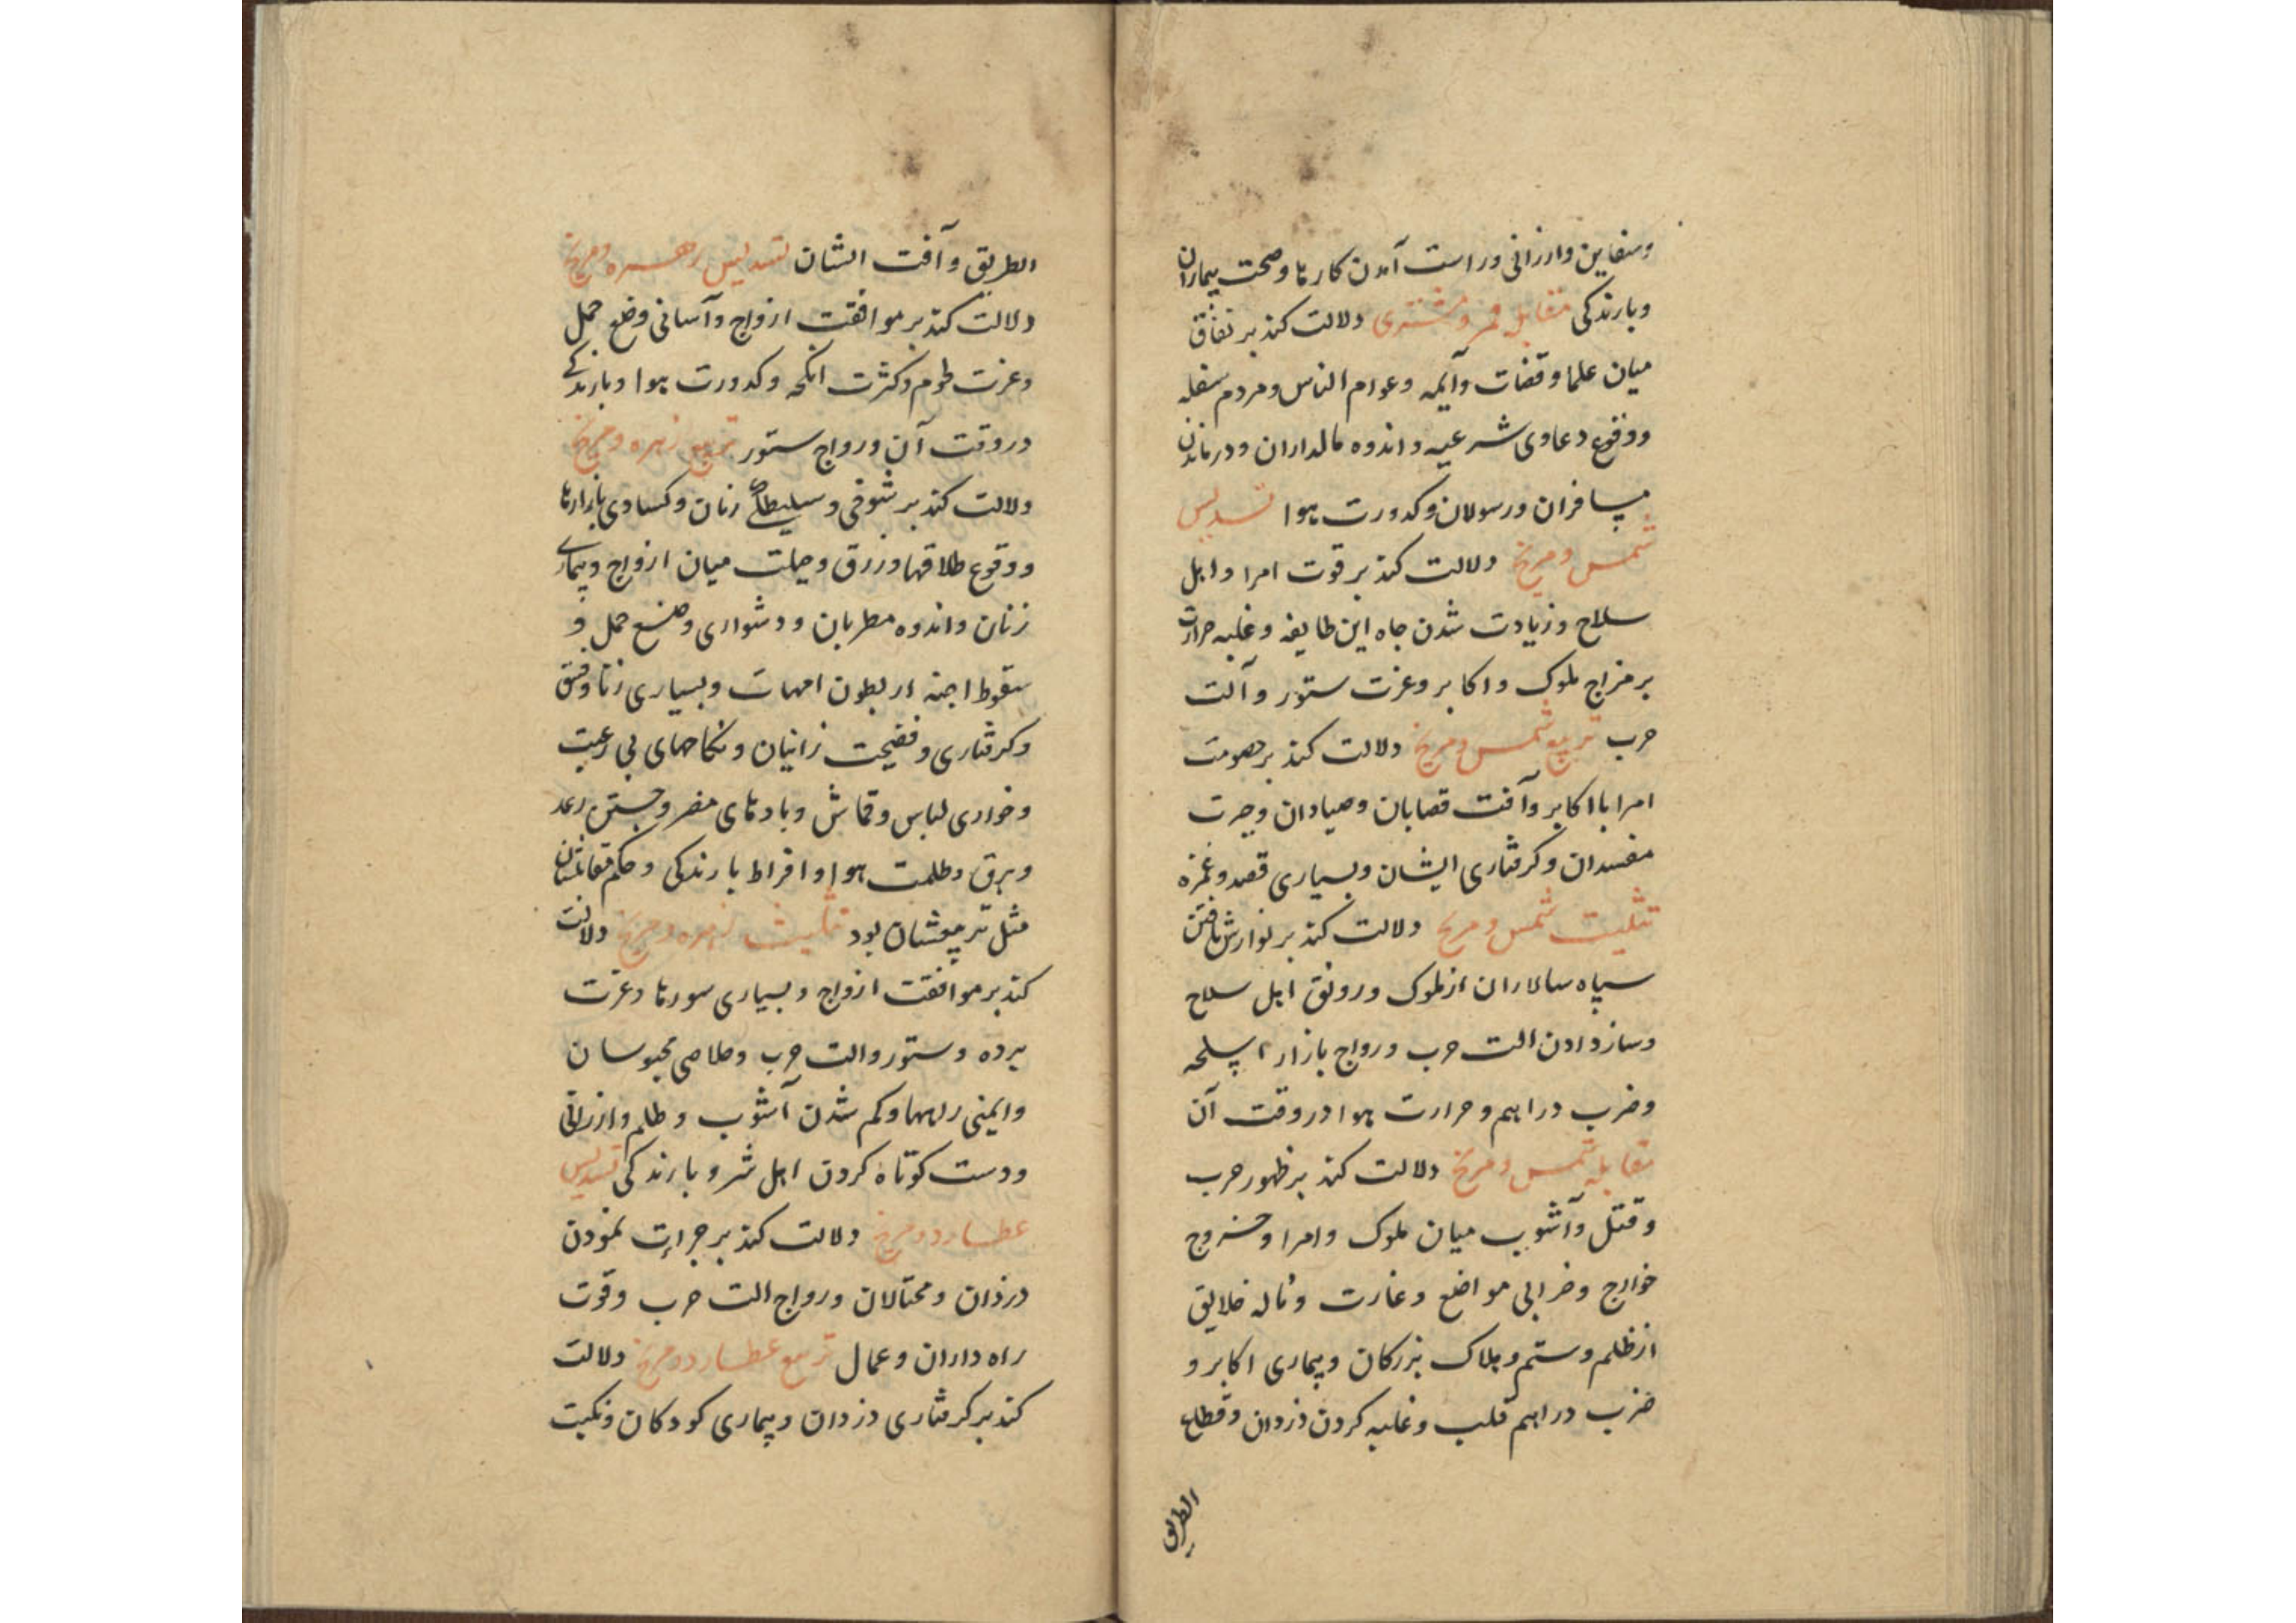 وسفاین وارزانی وراست آمدن کارها وصحت بیماران
وبارندکی مقابل قمر ومشتری دلالت کند بر نفاق
میان علما وقضات وآیمه وعوام الناس ومردم سفله
ووقوع دعاوی شرعیه واندوه مالداران ودرماندن
مسافران ورسولان وکدورت هوا تسدیس
شمس ومریخ دلالت کند بر قوت امرا واهل
سلاح وزیادت شدن جاه این طایفه وغلبه حرارت
بر مزاج ملوک واکابر وعزت ستور وآلت
حرب تربیع شمس ومریخ دلالت کند بر خصومت
امرا با اکابر وآفت قصابان وصیادان وحیرت
مفسدان وکرفتاری ایشان وبسیاری قصد وغمزه
تثلیث شمس ومریخ دلالت کند بر نوازش یافتن
سپاه سالاران از ملوک ورونق اهل سلاح
وساز دادن الت حرب ورواج بازار اسلحه
وضرب دراهم وحرارت هوا در وقت آن
مقابله شمس ومریخ دلالت کند بر ظهور حرب
وقتل وآشوب میان ملوک وامرا وخروج
خوارج وخرابی مواضع وغارت وناله خلایق
از ظلم وستم وهلاک بزرکان وبیماری اکابر و
ضرب دراهم قلب وغلبه کردن دزدان وقطاع
الطریق
الطریق وآفت الشان تسدیس زهره ومریخ
دلالت کند بر موافقت ازواج وآسانی وضع حمل
وعزت طوم وکثرت انکحه وکدورت هوا وبارندکے
در وقت آن ورواج ستور تربیع زهره ومریخ
دلالت کند بر شوخی وسلیطگی زنان وکسادی بازارها
ووقوع طلاقها وزرق وحیلت میان ازواج وبیماری
زنان واندوه مطربان ودشواری وضع حمل و
سقوط اجنه از بطون امهات وبسیاری زنا وفسق
وکرفتاری وفضیحت زانیان ونکاحهای بی رغبت
وخواری لباس وقماش وبادهای مضر وجستن رعد
وبرق وظلمت هوا وافراط بارندکی وحکم مقابلشان
مثل تربیعشان بود تثلیث زهره ومریخ دلالت
کند بر موافقت ازواج وبسیاری سورها وعزت
برده وستور والت حرب وخلاصی محبوسان
وایمنی راهها وکم شدن آشوب وظلم وارزانی
ودست کوتاه کردن اهل شر وبارندکی تسدیس
عطارد ومریخ دلالت کند بر جرات نمودن
دزدان ومحتالان ورواج الت حرب وقوت
راه داران وعمال تربیع عطارد ومریخ دلالت
کند بر کرفتاری دزدان وبیماری کودکان ونکبت